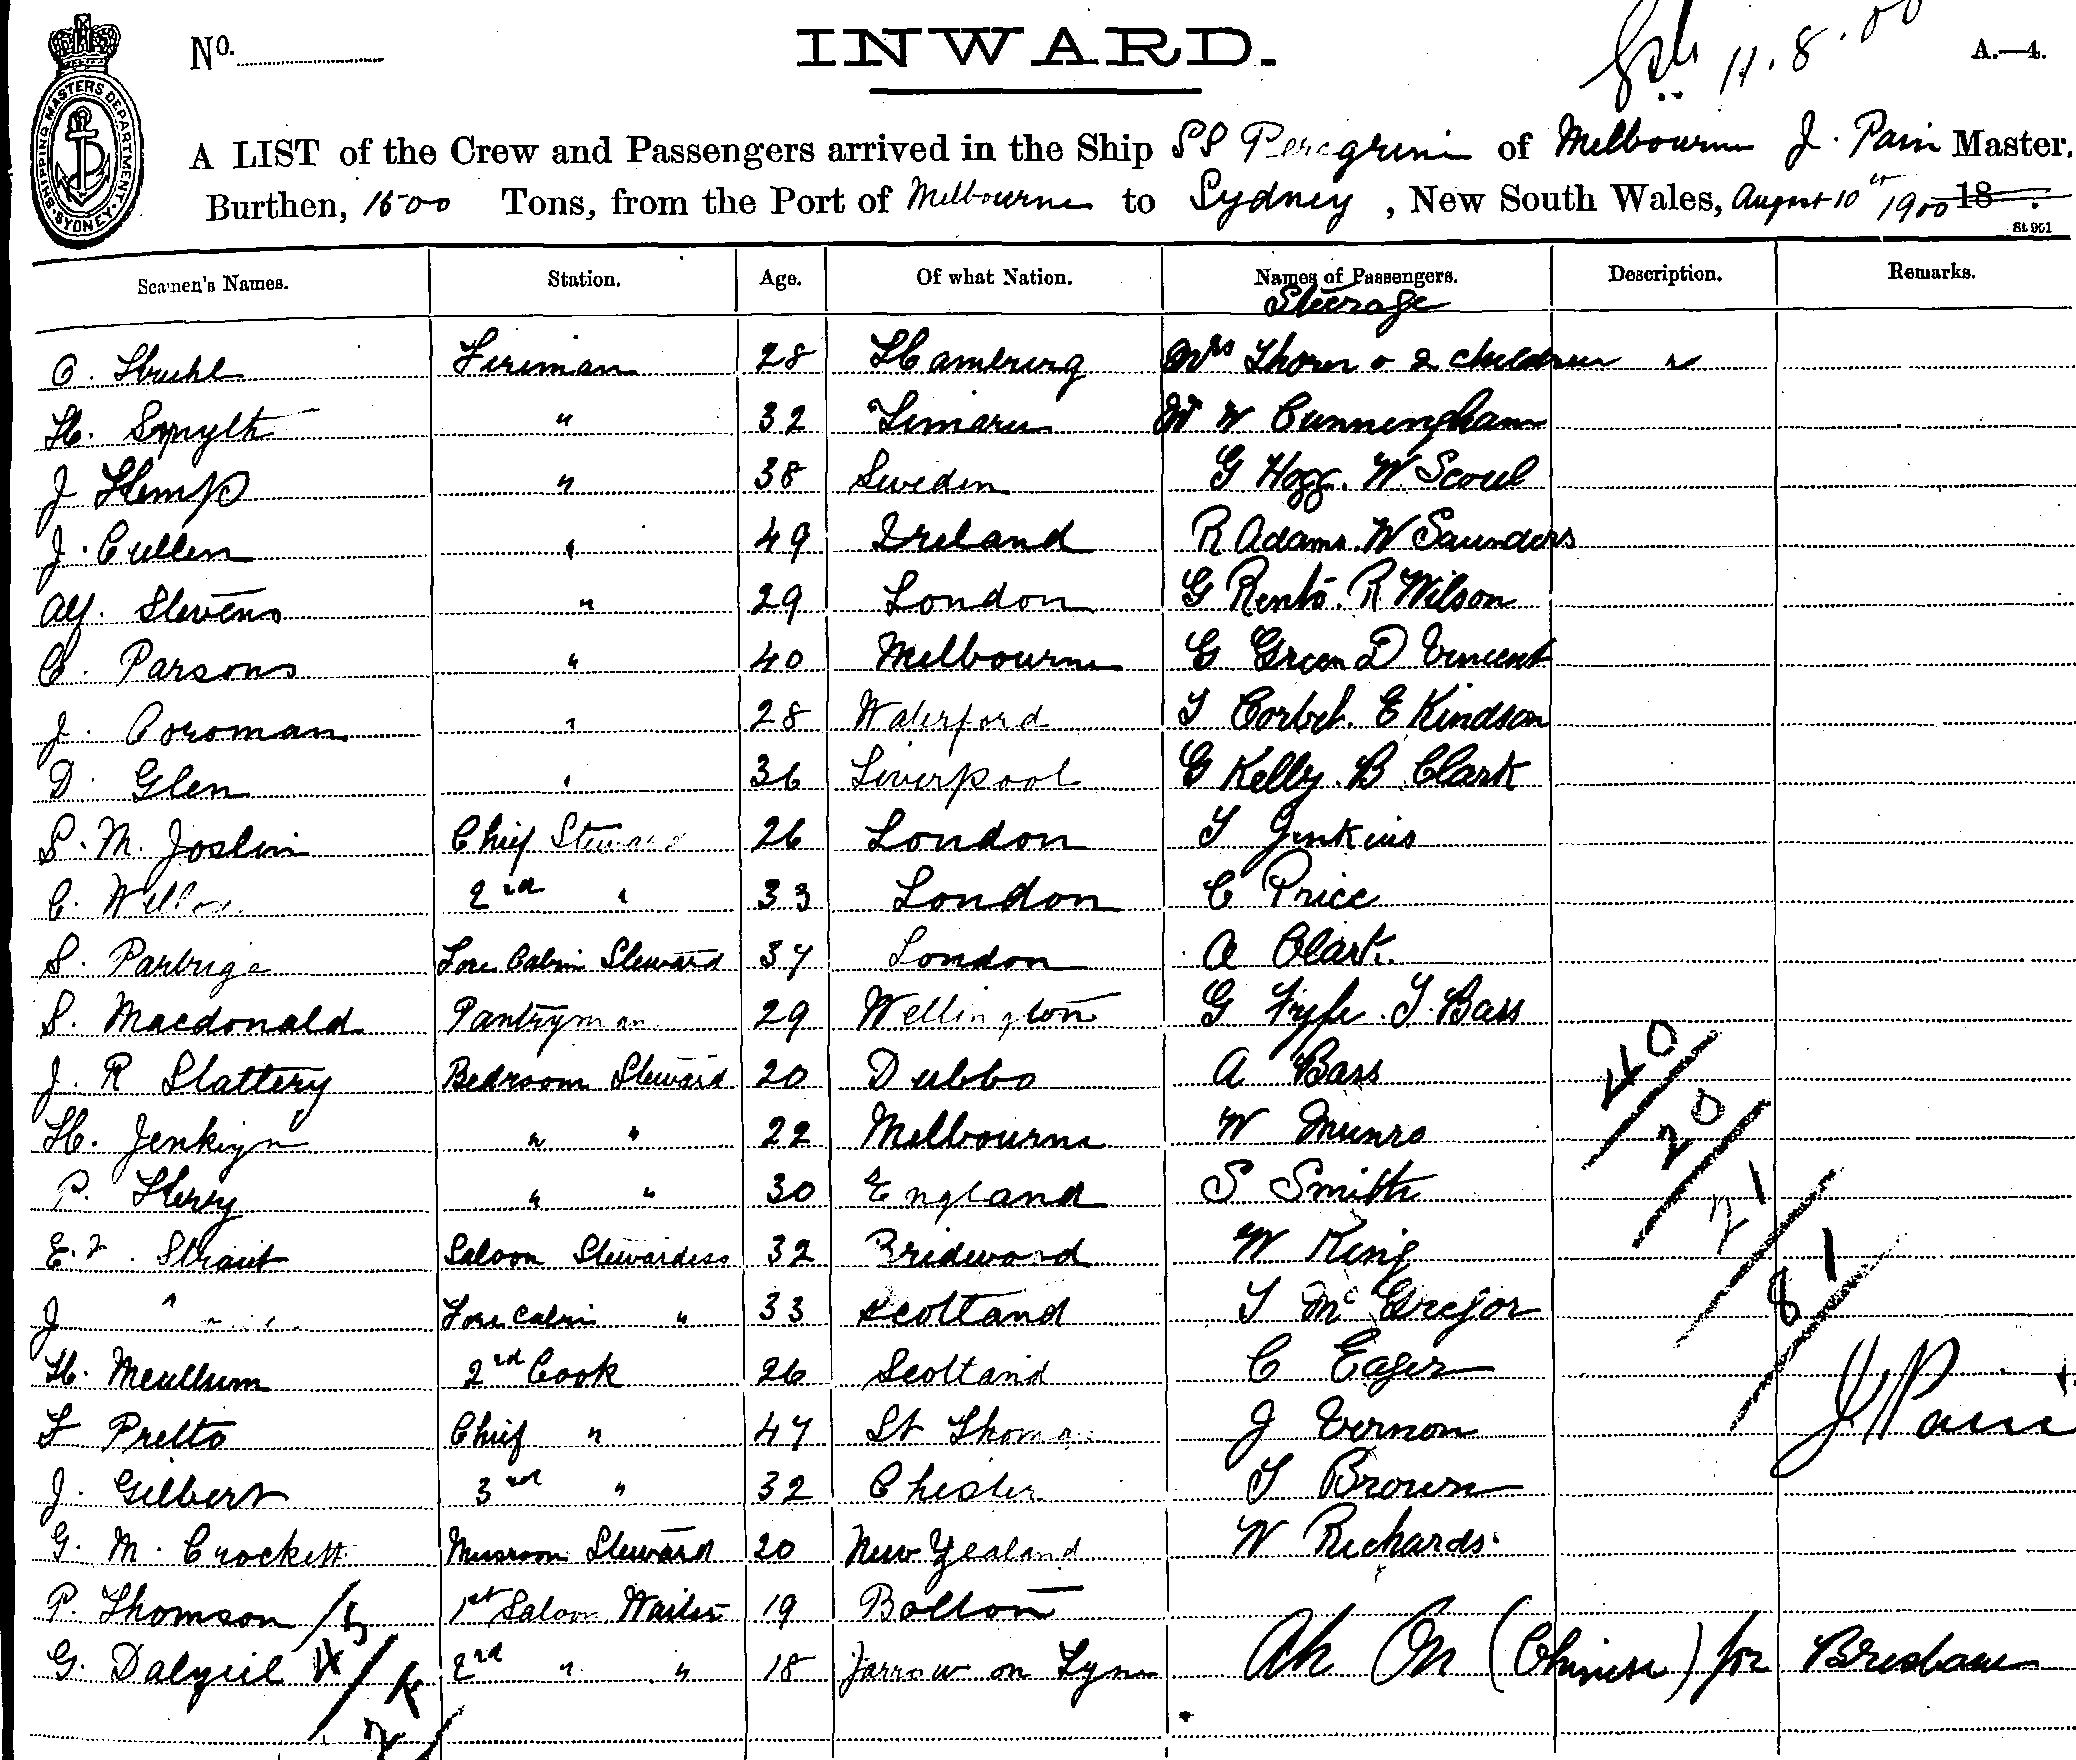 No.
INWARD.
11.8.00
A.—4.
SHIPPING MASTERS DEPARTMENT. SYDNEY.
A LIST of the Crew and Passengers arrived in the Ship SS Peregrine of Melbourne J. Pain Master.
Burthen, 1600 Tons, from the Port of Melbourne to Sydney, New South Wales, August 10th 1900 18
St 951
Seamen's Names. Station. Age. Of what Nation. Names of Passengers. Description. Remarks.
Steerage
Fireman 28 Hamburg Mrs Thorn & 2 children
H. Smyth " 32 Timaru W Cunningham
J Hemp " 38 Sweden G Hogg. W Scoul
J. Cullen " 49 Ireland R Adams. W Saunders
Alf. Stevens " 29 London G Rento. R Wilson
C. Parsons " 40 Melbourne G Green D Vincent
J. Coroman " 28 Waterford T Corbet. E Kindson
D. Glen " 36 Liverpool G Kelly. B Clark
S. M. Joslin Chief Steward 26 London T Jenkins
C. 2nd " 33 London C Price
S. Fore Cabin Steward 37 London A Clark.
S. Macdonald Pantryman 29 Wellington G Fyfe. T. Bass
J. R Slattery Bedroom Steward 20 Dubbo A Bass
H. Jenkyn " " 22 Melbourne W Munro
P. " " 30 England S Smith
Saloon Stewardess 32 W King
J " Fore Cabin " 33 Scotland T McGregor
H. Mcullum 2nd Cook 26 Scotland C Eager
F Pretto Chief " 47 St Thomas J Vernon
J. Gilbert 3rd " 32 Chester T Brown
G. M. Crockett Messroom Steward 20 New Zealand W Richards.
P. Thomson 1st Saloon Waiter 19 Bolton
G. Dalziel 2nd " " 18 Jarrow on Tyne Ah On (Chinese) for Brisbane
40
20
21
81
J Pain